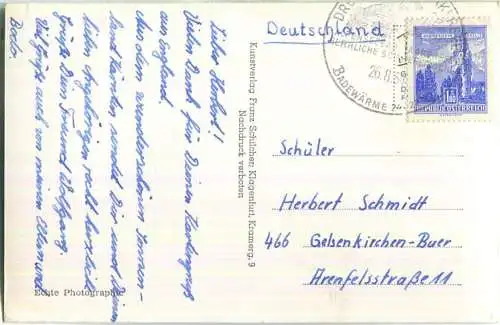 Lieber Herbert!
Vielen Dank für Deinen Kartengruß
aus England.
Aus dem wunderschönen
land Kärnten sendet Dir und Deinen
lieben Angehörigen recht herzliche
Grüße Dein Freund Wolfgang.
Viel Grüße auch von meinen Eltern und
Bodo.
Echte Photographie
Kunstverlag Franz Schilcher, Klagenfurt, Kramerg. 9
Nachdruck verboten
Deutschland
HERRLICHE
BADEWÄRME 24
26.8.
REPUBLIK ÖSTERREICH
Schüler
Herbert Schmidt
466 Gelsenkirchen-Buer
Arenfelsstraße 11